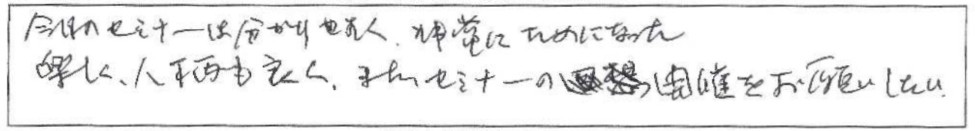 今日のセミナーは分かり易く、非常にためになった
楽しく、人柄も良く、またセミナーの開催をお願いしたい。